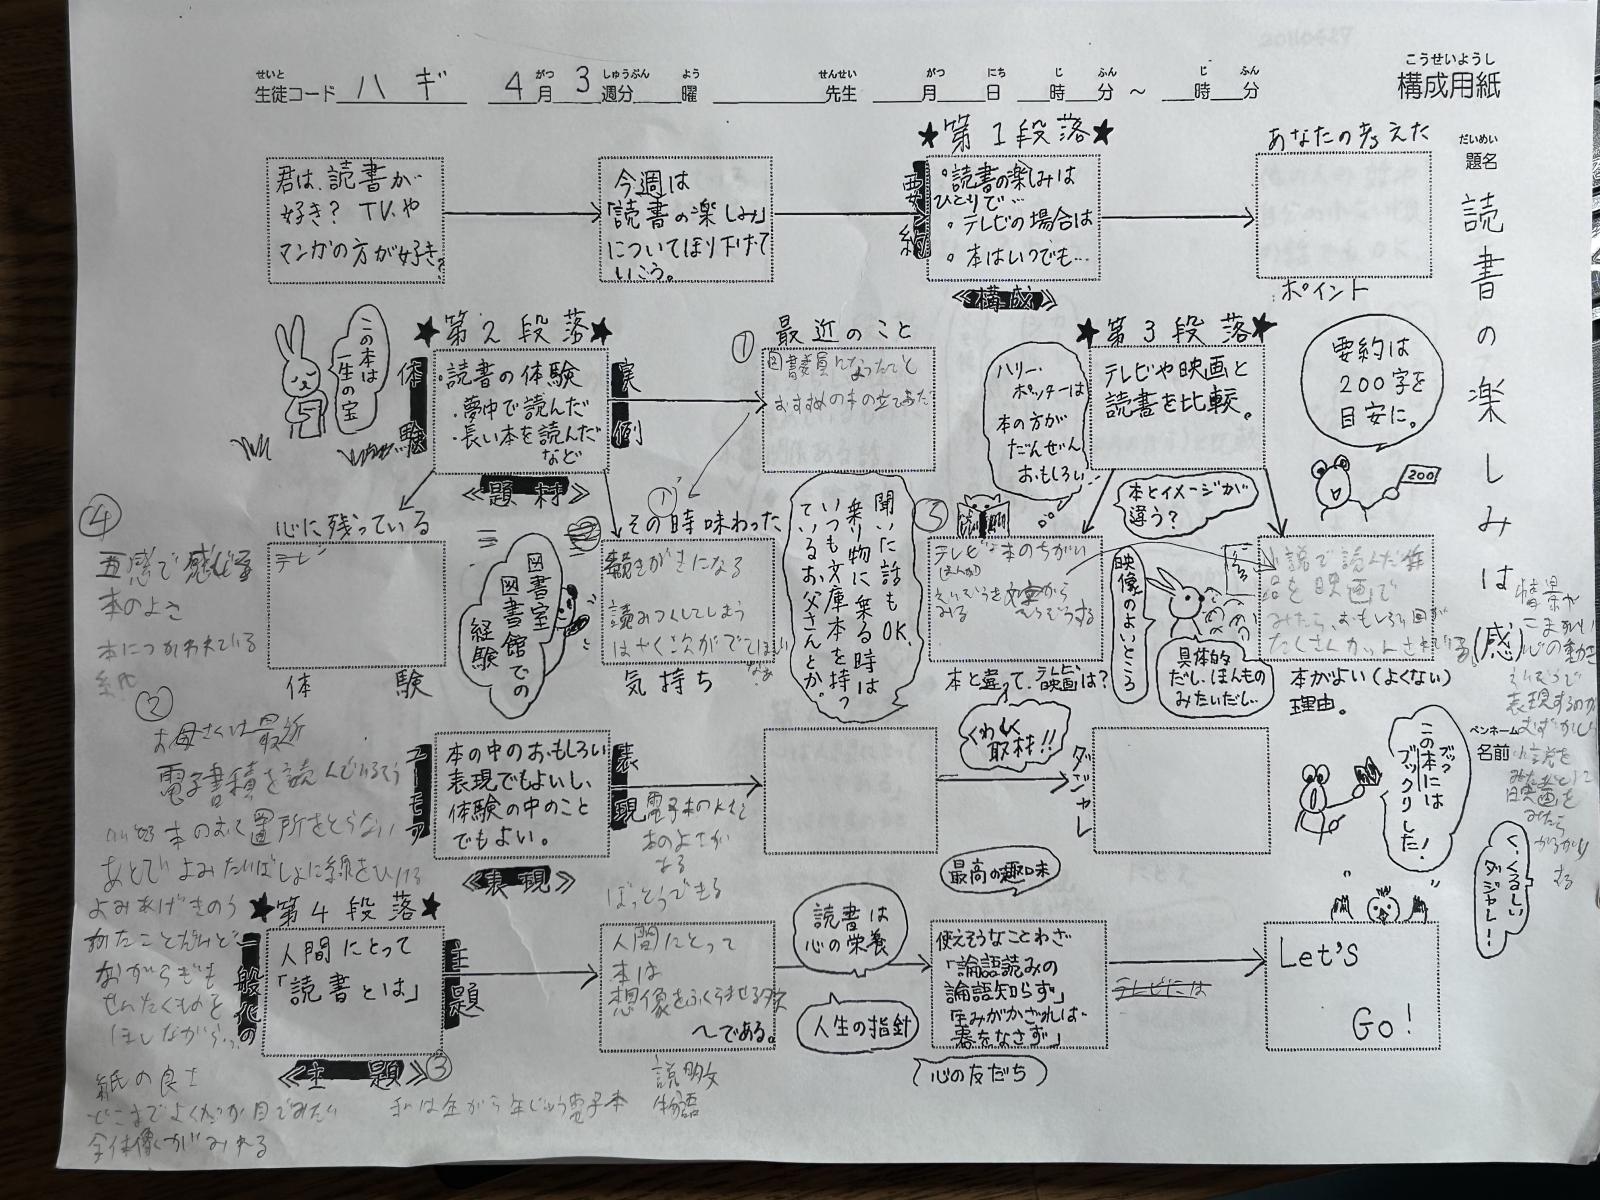 こうせいようし
構成用紙
せいと
生徒コード ハギ 4月 3週分 曜 先生 月 日 時 分 〜 時 分
がつ しゅうぶん よう せんせい がつ にち じ ふん じ ふん
だいめい
題名
読書の楽しみは
(感)
ペンネーム
名前
君は、読書が
好き? TV、や
マンガの方が好き?
今週は
「読書の楽しみ」
についてほり下げて
いこう。
★第1段落★
要約
◦読書の楽しみは
ひとりで…
◦テレビの場合は
◦本はいつでも…
≪構成≫
あなたの考えた
ポイント
要約は
200字を
目安に。
200
この本は
一生の宝
★第2段落★
体験
・読書の体験
・夢中で読んだ
・長い本を読んだ
など
実例
≪題材≫
① 最近のこと
図書委員になったこと
おすすめの本の
★第3段落★
テレビや映画と
読書を比較。
ハリー・
ポッターは
本の方が
だんぜん
おもしろい
本とイメージが
違う?
④
心に残っている
テレビ
体験
図書室
図書館での
経験
①
その時味わった
続きがきになる
読みつくしてしまう
はやく次がでてほしい
なあ
気持ち
聞いた話もOK、
乗り物に乗る時は
いつも文庫本を持っ
ているお父さんとか。
③
テレビと本のちがい
そうぞうする
本と違って、テレビ映画は?
映像のよいところ
具体的
だし、ほんもの
みたいだし…
小説で読んだ作
品を映画で
みたら、おもしろい回が
たくさんカットされている。
本がよい(よくない)
理由。
情景が
こまかい
心の動き
表現するのが
むずかしい
小説を
映画を
みたら
がっかり
する
五感で感じる
本のよさ
本につかわれている
紙
②
お母さんは最近
電子書積を読んでいるそう
本のおく置所をとらない
あとでよみたいばしょに線をひける
よみあげきのう
ながらぎき
せんたくものを
ほしながら
ユーモア
本の中のおもしろい
表現でもよいし、
体験の中のこと
でもよい。
表現
≪表現≫
本のよさが
ある
ぼっとうできる
くわしく
取材!!
ダジャレ
この本には
ブックリした!
ブック
く、くるしい
ダジャレ!
★第4段落★
一般化の
人間にとって
「読書とは」
主題
≪主題≫ ③
人間にとって
本は
想像をふくらませる
〜である。
説明文
物語
読書は
心の栄養
人生の指針
最高の趣味
心の友だち
使えそうなことわざ
「論語読みの
論語知らず」
「玉みがかざれば
書をなさず」
テレビには
Let's
Go!
紙の良さ
全体像がみれる